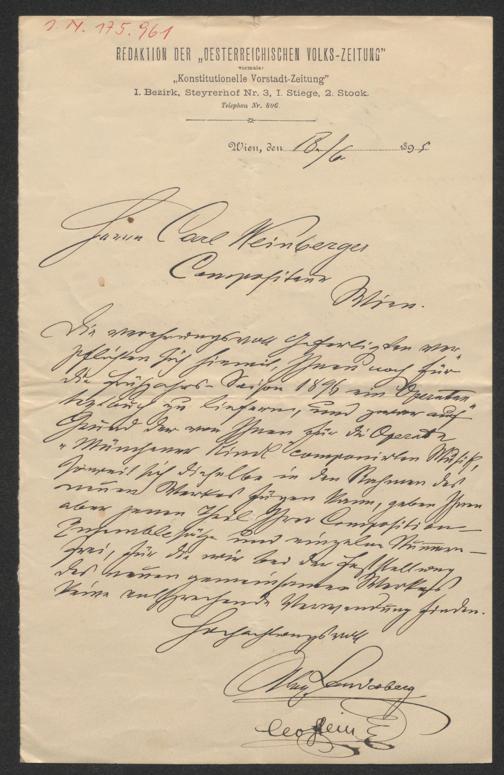 J. N. 175.961
REDAKTION DER „OESTERREICHISCHEN VOLKS-ZEITUNG"
vormals:
„Konstitutionelle Vorstadt-Zeitung"
I. Bezirk, Steyrerhof Nr. 3, I. Stiege, 2. Stock.
Telephon Nr. 806.
Wien, den 18./6. 1895
Herrn Carl Weinberger
Compositeur
Wien.
Die verehrungsvoll Gefertigten ver-
pflichten sich hiemit, Ihnen noch für
die Frühjahrs-Saison 1896 ein Operetten-
textbuch zu liefern, und zwar auf
Grund der von Ihnen für die Operette
„Münchener Kindl" componirten Musik,
soweit sich dieselbe in den Rahmen des
neuen Werkes fügen kann, geben Ihnen
aber jenen Theil Ihrer Composition –
Ensemblesätze und einzelne Nummern –
frei, für die wir bei der Feststellung
des neuen gemeinsamen Werkes
keine entsprechende Verwendung finden.
Hochachtungsvoll
Alex. Landesberg
Leo Stein